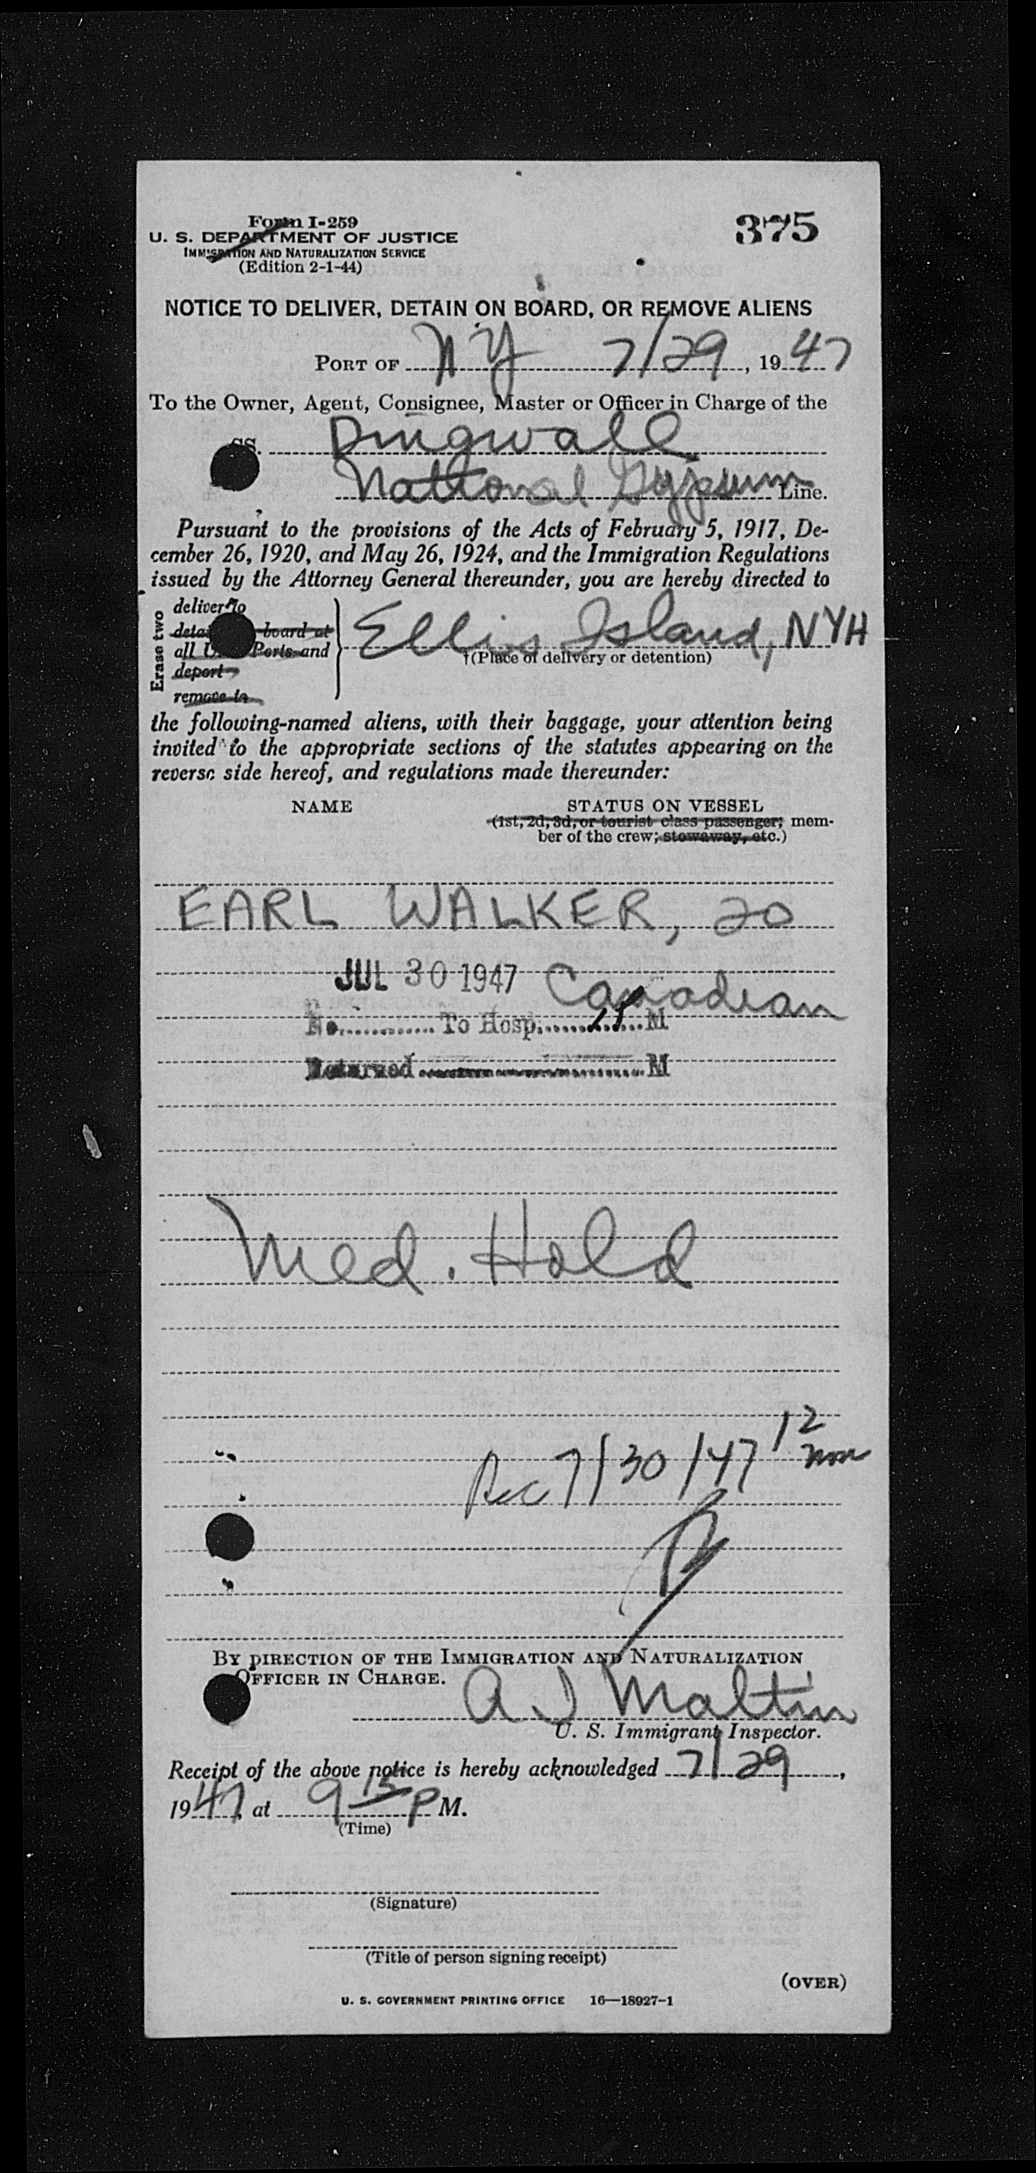 Form I-259
375
U. S. DEPARTMENT OF JUSTICE
IMMIGRATION AND NATURALIZATION SERVICE
(Edition 2-1-44)
NOTICE TO DELIVER, DETAIN ON BOARD, OR REMOVE ALIENS
PORT OF NY 7/29, 1947
To the Owner, Agent, Consignee, Master or Officer in Charge of the
SS. Dingwall
National Gypsum Line.
Pursuant to the provisions of the Acts of February 5, 1917, De-
cember 26, 1920, and May 26, 1924, and the Immigration Regulations
issued by the Attorney General thereunder, you are hereby directed to
Erase two
deliver to
board at
all Ports and
deport
remove to
Ellis Island, NYH
†(Place of delivery or detention)
the following-named aliens, with their baggage, your attention being
invited to the appropriate sections of the statutes appearing on the
reverse side hereof, and regulations made thereunder:
NAME
STATUS ON VESSEL
(1st, 2d, 3d, or tourist class passenger; mem-
ber of the crew; stowaway, etc.)
EARL WALKER, 20
JUL 30 1947 Canadian
No. To Hosp. M
Returned M
Med. Hold
Rec 7/30/47 12
BY DIRECTION OF THE IMMIGRATION AND NATURALIZATION
OFFICER IN CHARGE.
A J Maltin
U. S. Immigrant Inspector.
Receipt of the above notice is hereby acknowledged 7/29,
1947 at 9 15 P M.
(Time)
(Signature)
(Title of person signing receipt)
(OVER)
U. S. GOVERNMENT PRINTING OFFICE 16—18927-1